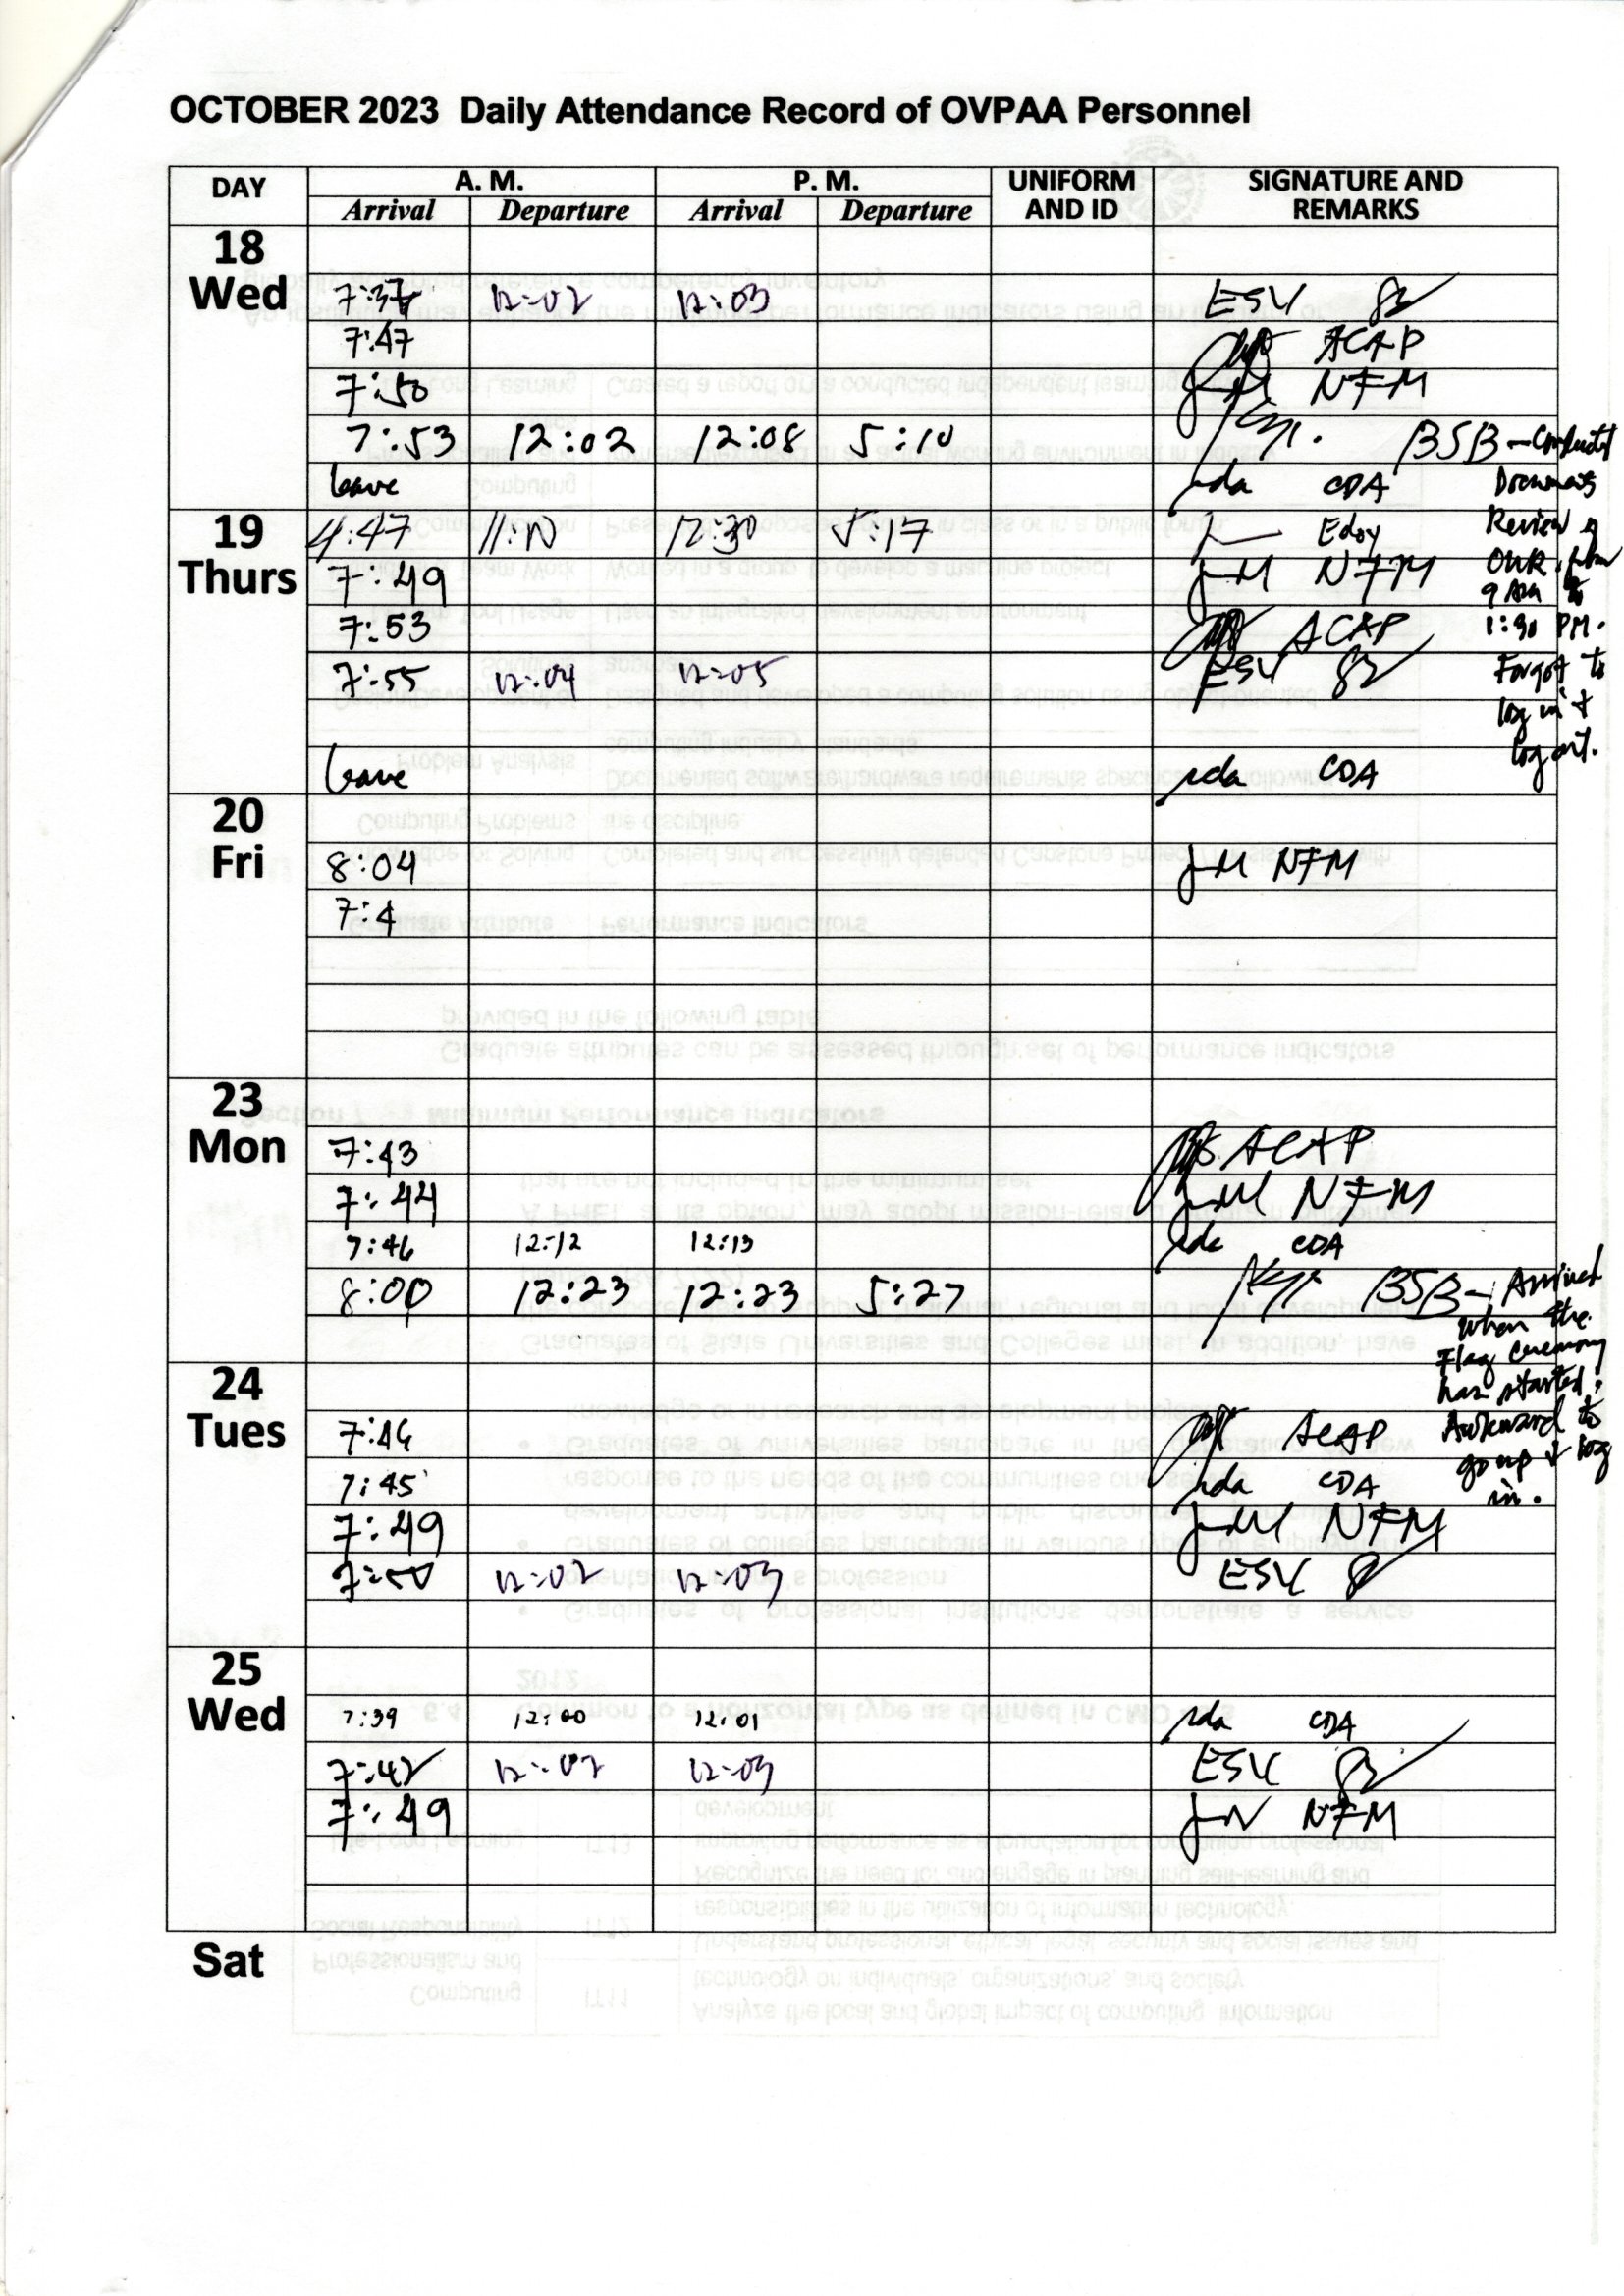 OCTOBER 2023 Daily Attendance Record of OVPAA Personnel
DAY A. M. P. M. UNIFORM AND ID SIGNATURE AND REMARKS
Arrival Departure Arrival Departure
18 Wed
7:37 12:02 12:03 ESV
7:47 ACAP
7:50 NFM
7:53 12:02 12:08 5:10 BSB - Conduct
leave CDA Documents
19 Thurs
4:47 12:30 5:17 Edoy Review
7:49 NFM 9 AM to
7:53 ACAP 1:30 PM.
7:55 12:04 12:05 ESV Forgot to
log in &
leave CDA log out.
20 Fri
8:04 NFM
7:4
23 Mon
7:43 ACAP
7:44 NFM
7:46 12:12 12:13 CDA
8:00 12:23 12:23 5:27 BSB - Arrived
when the
Flag Ceremony
has started!
24 Tues
7:46 ACAP Awkward to
7:45 CDA go up & log
in.
7:49 NFM
7:50 12:02 12:03 ESV
25 Wed
7:39 12:00 12:01 CDA
7:42 12:02 12:03 ESV
7:49 NFM
Sat